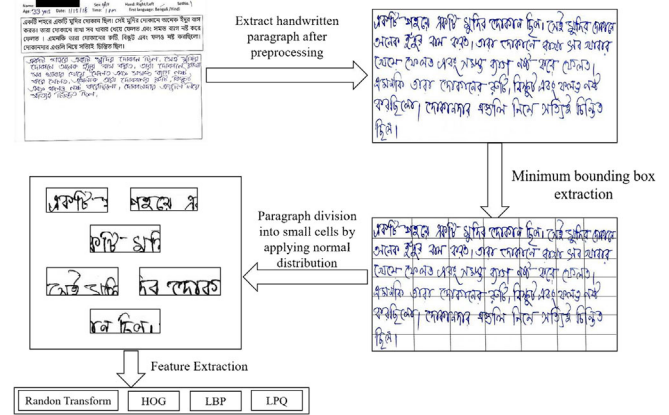 Age 33 yrs.
একটি শহরে একটি মুদির দোকান ছিল। সেই মুদির দোকানে অনেক ইঁদুর বাস
করত। তারা দোকানে রাখা সব খাবার খেয়ে ফেলত এবং সমস্ত ব্যাগ নষ্ট করে
ফেলত। এমনকি তারা দোকানের রুটি, বিস্কুট এবং ফলও নষ্ট করছিলো।
দোকানদার এগুলি নিয়ে সত্যিই চিন্তিত ছিল।
Extract handwritten
paragraph after
preprocessing
একটি শহরে একটি মুদির দোকান ছিল। সেই মুদির দোকানে
অনেক ইঁদুর বাস করত। তারা দোকানে রাখা সব খাবার
খেয়ে ফেলত এবং সমস্ত ব্যাগ নষ্ট করে ফেলত।
এমনকি তারা দোকানের রুটি, বিস্কুট এবং ফলও নষ্ট
করছিলো। দোকানদার এগুলি নিয়ে সত্যিই চিন্তিত
ছিল।
Minimum bounding box
extraction
একটি শহরে একটি মুদির দোকান ছিল। সেই মুদির দোকানে
অনেক ইঁদুর বাস করত। তারা দোকানে রাখা সব খাবার
খেয়ে ফেলত এবং সমস্ত ব্যাগ নষ্ট করে ফেলত।
এমনকি তারা দোকানের রুটি, বিস্কুট এবং ফলও নষ্ট
করছিলো। দোকানদার এগুলি নিয়ে সত্যিই চিন্তিত
ছিল।
Paragraph division
into small cells by
applying normal
distribution
একটি
শহরে এ
কটি মুদি
সেই মুদি
দির দোক
ান ছিল।
Feature Extraction
Randon Transform
HOG
LBP
LPQ